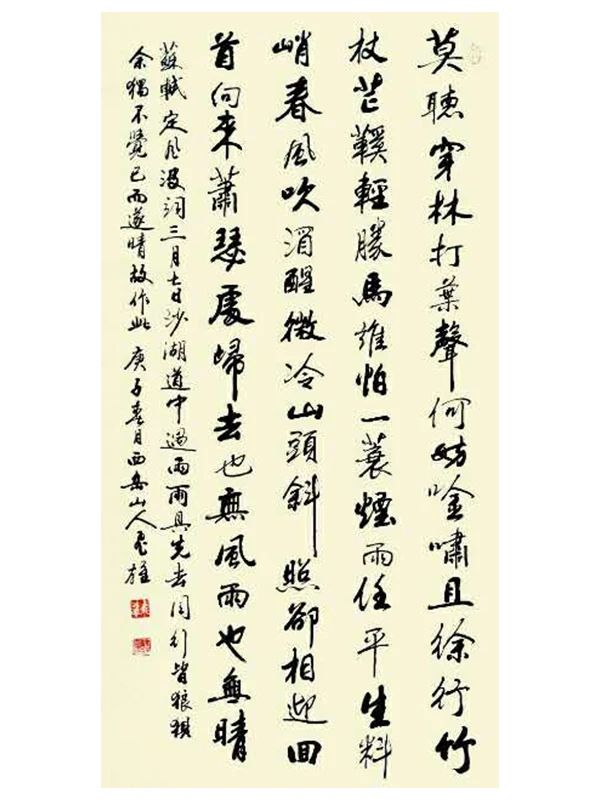 莫聽穿林打葉聲何妨唫嘯且徐行竹
杖芒鞵輕勝馬誰怕一蓑煙雨任平生料
峭春風吹酒醒微冷山頭斜照卻相迎回
首向來蕭瑟處歸去也無風雨也無晴
蘇軾定風波詞三月七日沙湖道中遇雨雨具先去同行皆狼狽
余獨不覺已而遂晴故作此 庚子春月西山人雄